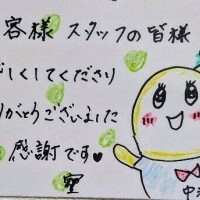 客様 スタッフの皆様
しくしてくださり
りがとうございました
感謝です♥